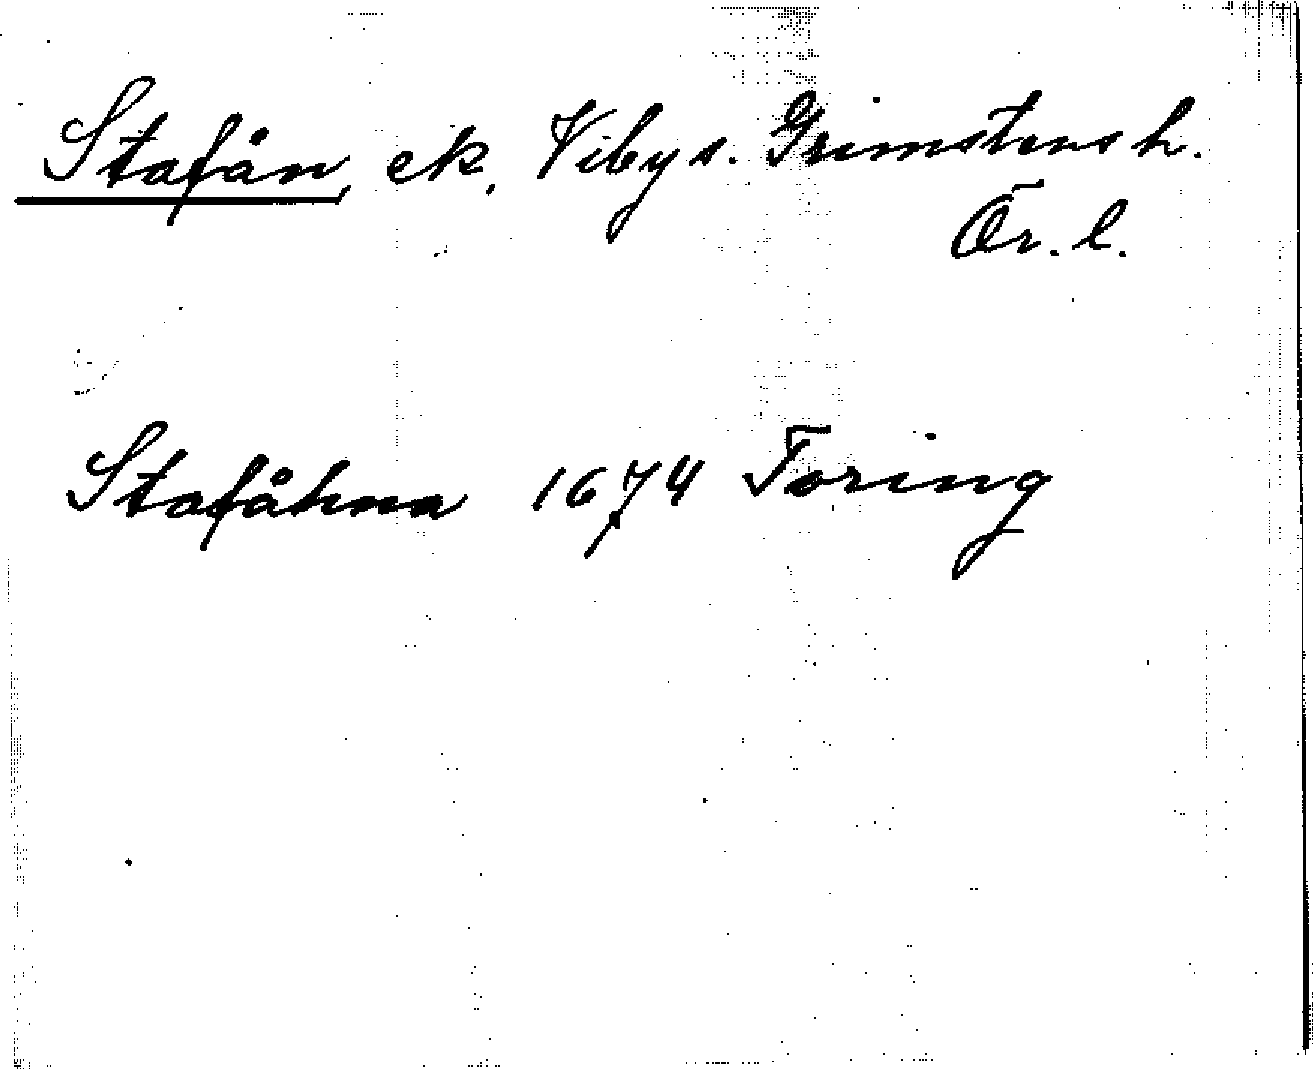 Stafån, ek, Viby s. Grimstens h.
Ör. l.
Stafåhna 1674 Toring